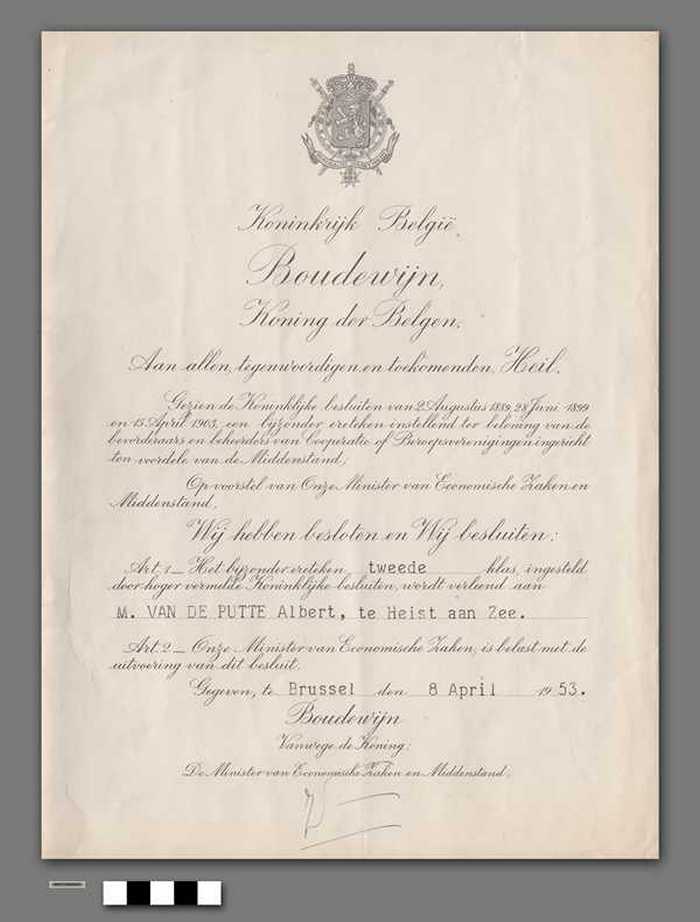 Koninkrijk België.
Boudewijn,
Koning der Belgen,
Aan allen, tegenwoordigen en toekomenden, Heil.
Gezien de Koninklijke besluiten van 2 Augustus 1889, 28 Juni 1899
en 15 April 1903, een bijzonder ereteken instellend ter beloning van de
bevorderaars en beheerders van Cooperatie of Beroepsverenigingen ingericht
ten voordele van de Middenstand;
Op voorstel van Onze Minister van Economische Zaken en
Middenstand,
Wij hebben besloten en Wij besluiten:
Art. 1_ Het bijzonder ereteken tweede klas, ingesteld
door hoger vermelde Koninklijke besluiten, wordt verleend aan
M. VAN DE PUTTE Albert, te Heist aan Zee.
Art. 2_ Onze Minister van Economische Zaken, is belast met de
uitvoering van dit besluit.
Gegeven, te Brussel den 8 April 1953.
Boudewijn
Vanwege de Koning:
De Minister van Economische Zaken en Middenstand,